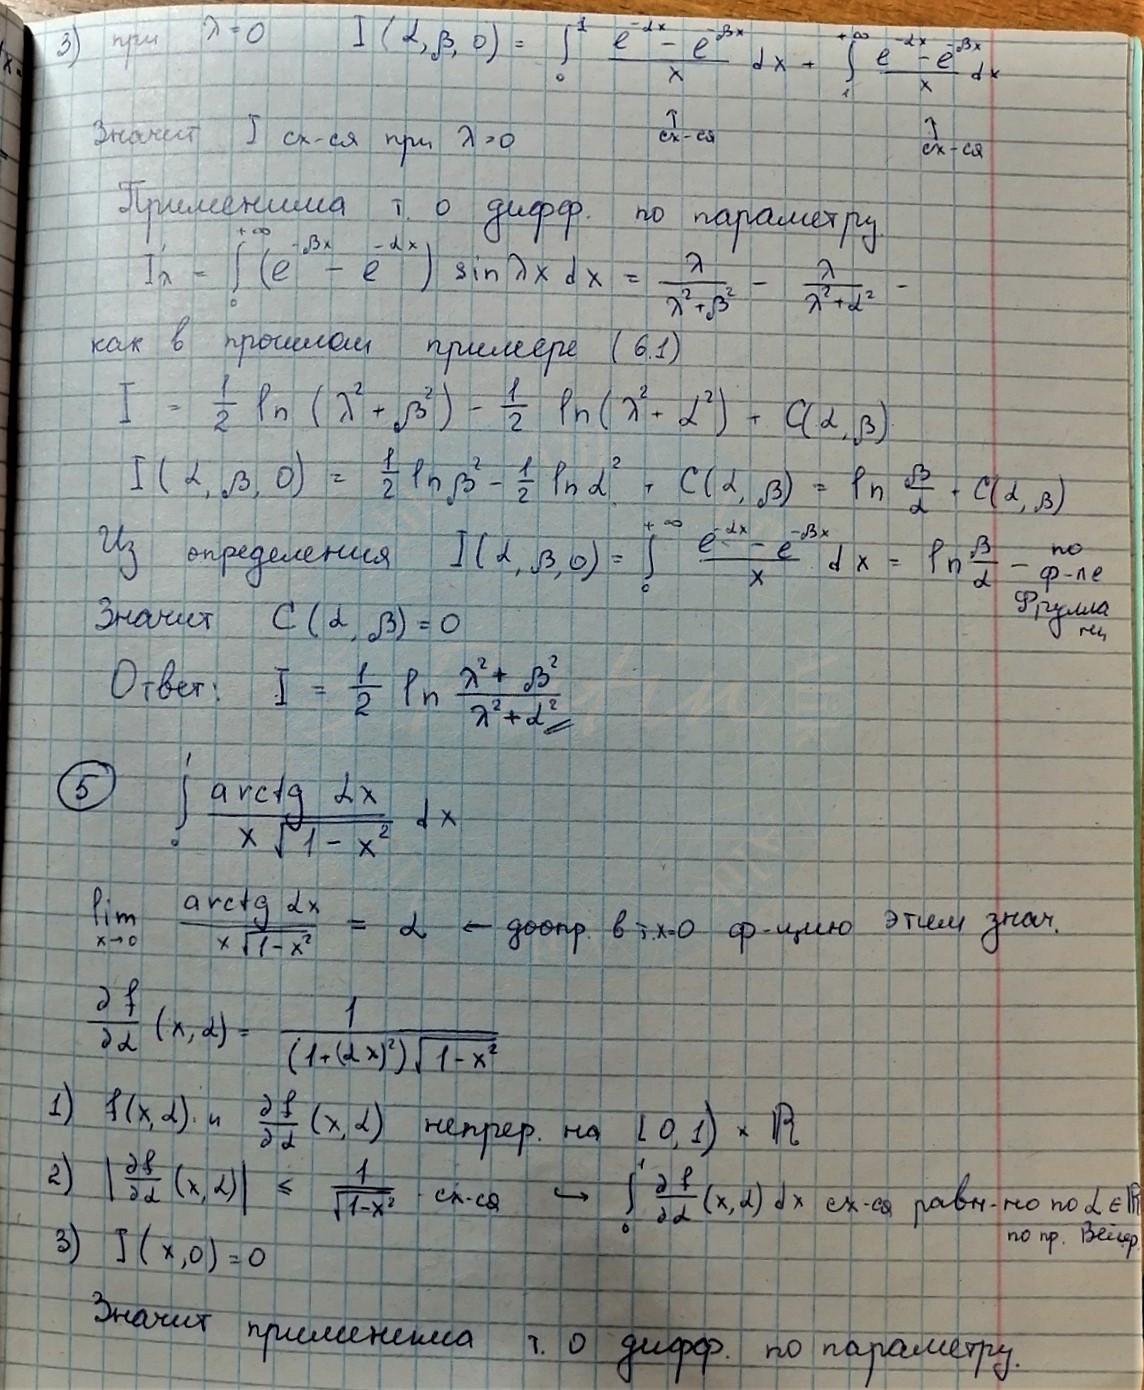 3) при λ=0 I(α, β, 0) = ∫₀¹ (e^{-αx} - e^{-βx})/x dx + ∫₁^{+∞} (e^{-αx} - e^{-βx})/x dx
Значит I сх-ся при λ=0 ↑ сх-ся ↑ сх-ся
Применима т. о дифф. по параметру.
I'_λ = ∫₀^{+∞} (e^{-βx} - e^{-αx}) sin λx dx = λ/(λ²+β²) - λ/(λ²+α²) -
как в прошлом примере (6.1)
I = 1/2 ln (λ²+β²) - 1/2 ln(λ²+α²) + C(α, β)
I(α, β, 0) = 1/2 ln β² - 1/2 ln α² + C(α, β) = ln β/α + C(α, β)
Из определения I(α, β, 0) = ∫₀^{+∞} (e^{-αx} - e^{-βx})/x dx = ln β/α - по ф-ле Фрулла ни
Значит C(α, β) = 0
Ответ: I = 1/2 ln (λ²+β²)/(λ²+α²)
5 ∫₀¹ arctg αx/(x√(1-x²)) dx
lim_{x→0} arctg αx/(x√(1-x²)) = α ← доопр. в т.x=0 ф-цию этим знач.
∂f/∂α (x, α) = 1/((1+(αx)²)√(1-x²))
1) f(x, α) и ∂f/∂α (x, α) непрер. на [0,1) × ℝ
2) |∂f/∂α (x, α)| ≤ 1/√(1-x²) сх-ся ↪ ∫₀¹ ∂f/∂α (x, α) dx сх-ся равн-но по α ∈ ℝ
по пр. Вейер.
3) I(x, 0) = 0
Значит применима т. о дифф. по параметру.